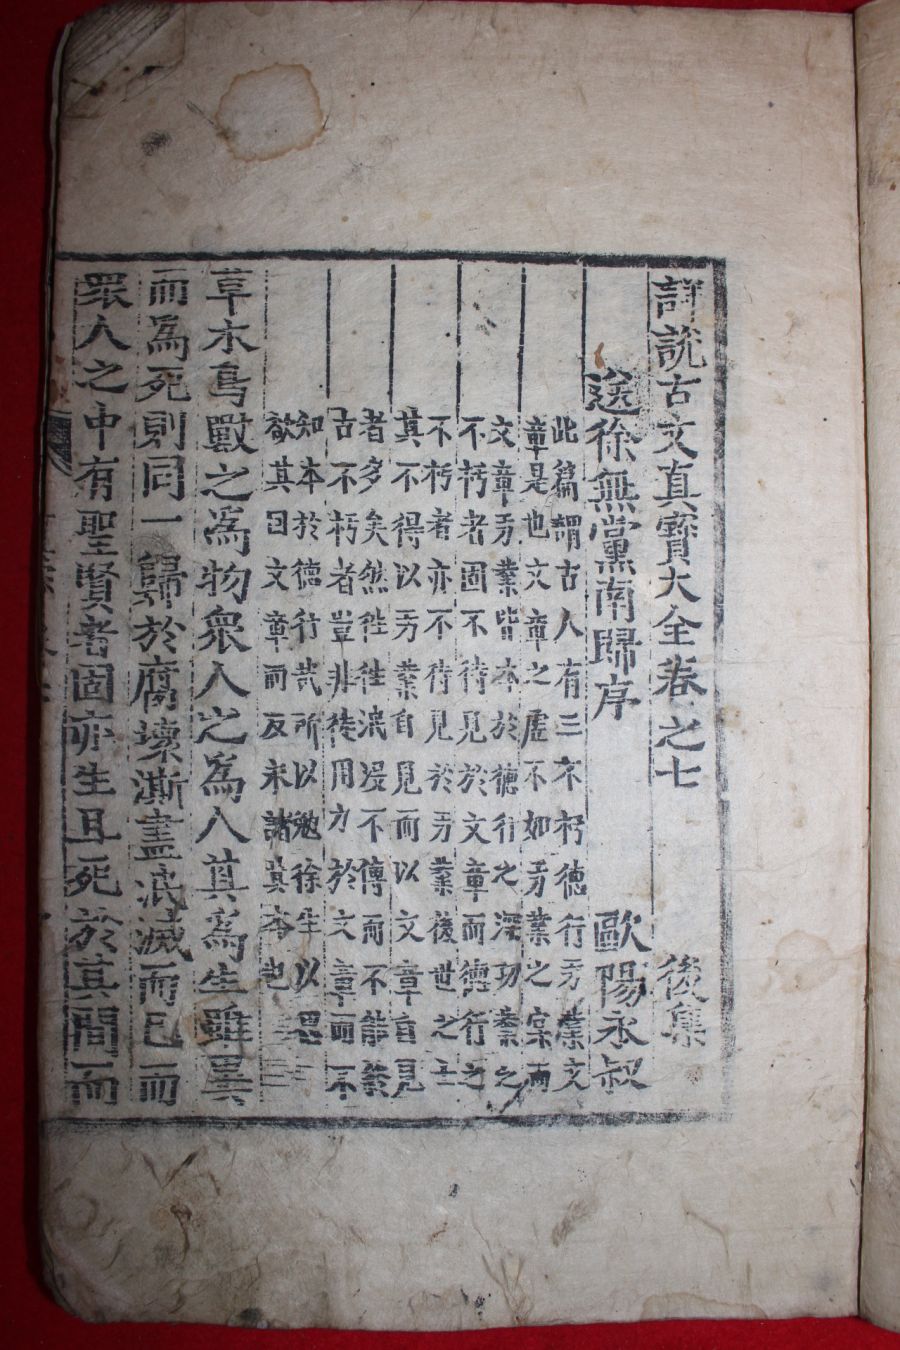 詳說古文真寶大全卷之七 後集
送徐無黨南歸序 歐陽永叔
此篇謂古人有三不朽德行功業文
章是也文章之虛不如功業之實而
文章功業皆本於德行之深功業之
不朽者固不待見於文章而德行之
不朽者亦不待見於功業後世之士
其不得以功業自見而以文章自見
者多矣然徃徃泯没不傳而不能終
古不朽者豈非徒用力於文章而不
知本於德行哉所以勉徐生以思
欲其因文章而反求諸其本也
草木鳥獸之為物衆人之為人其為生雖異
而為死則同一歸於腐壞澌盡泯滅而已而
衆人之中有聖賢者固亦生且死於其間而